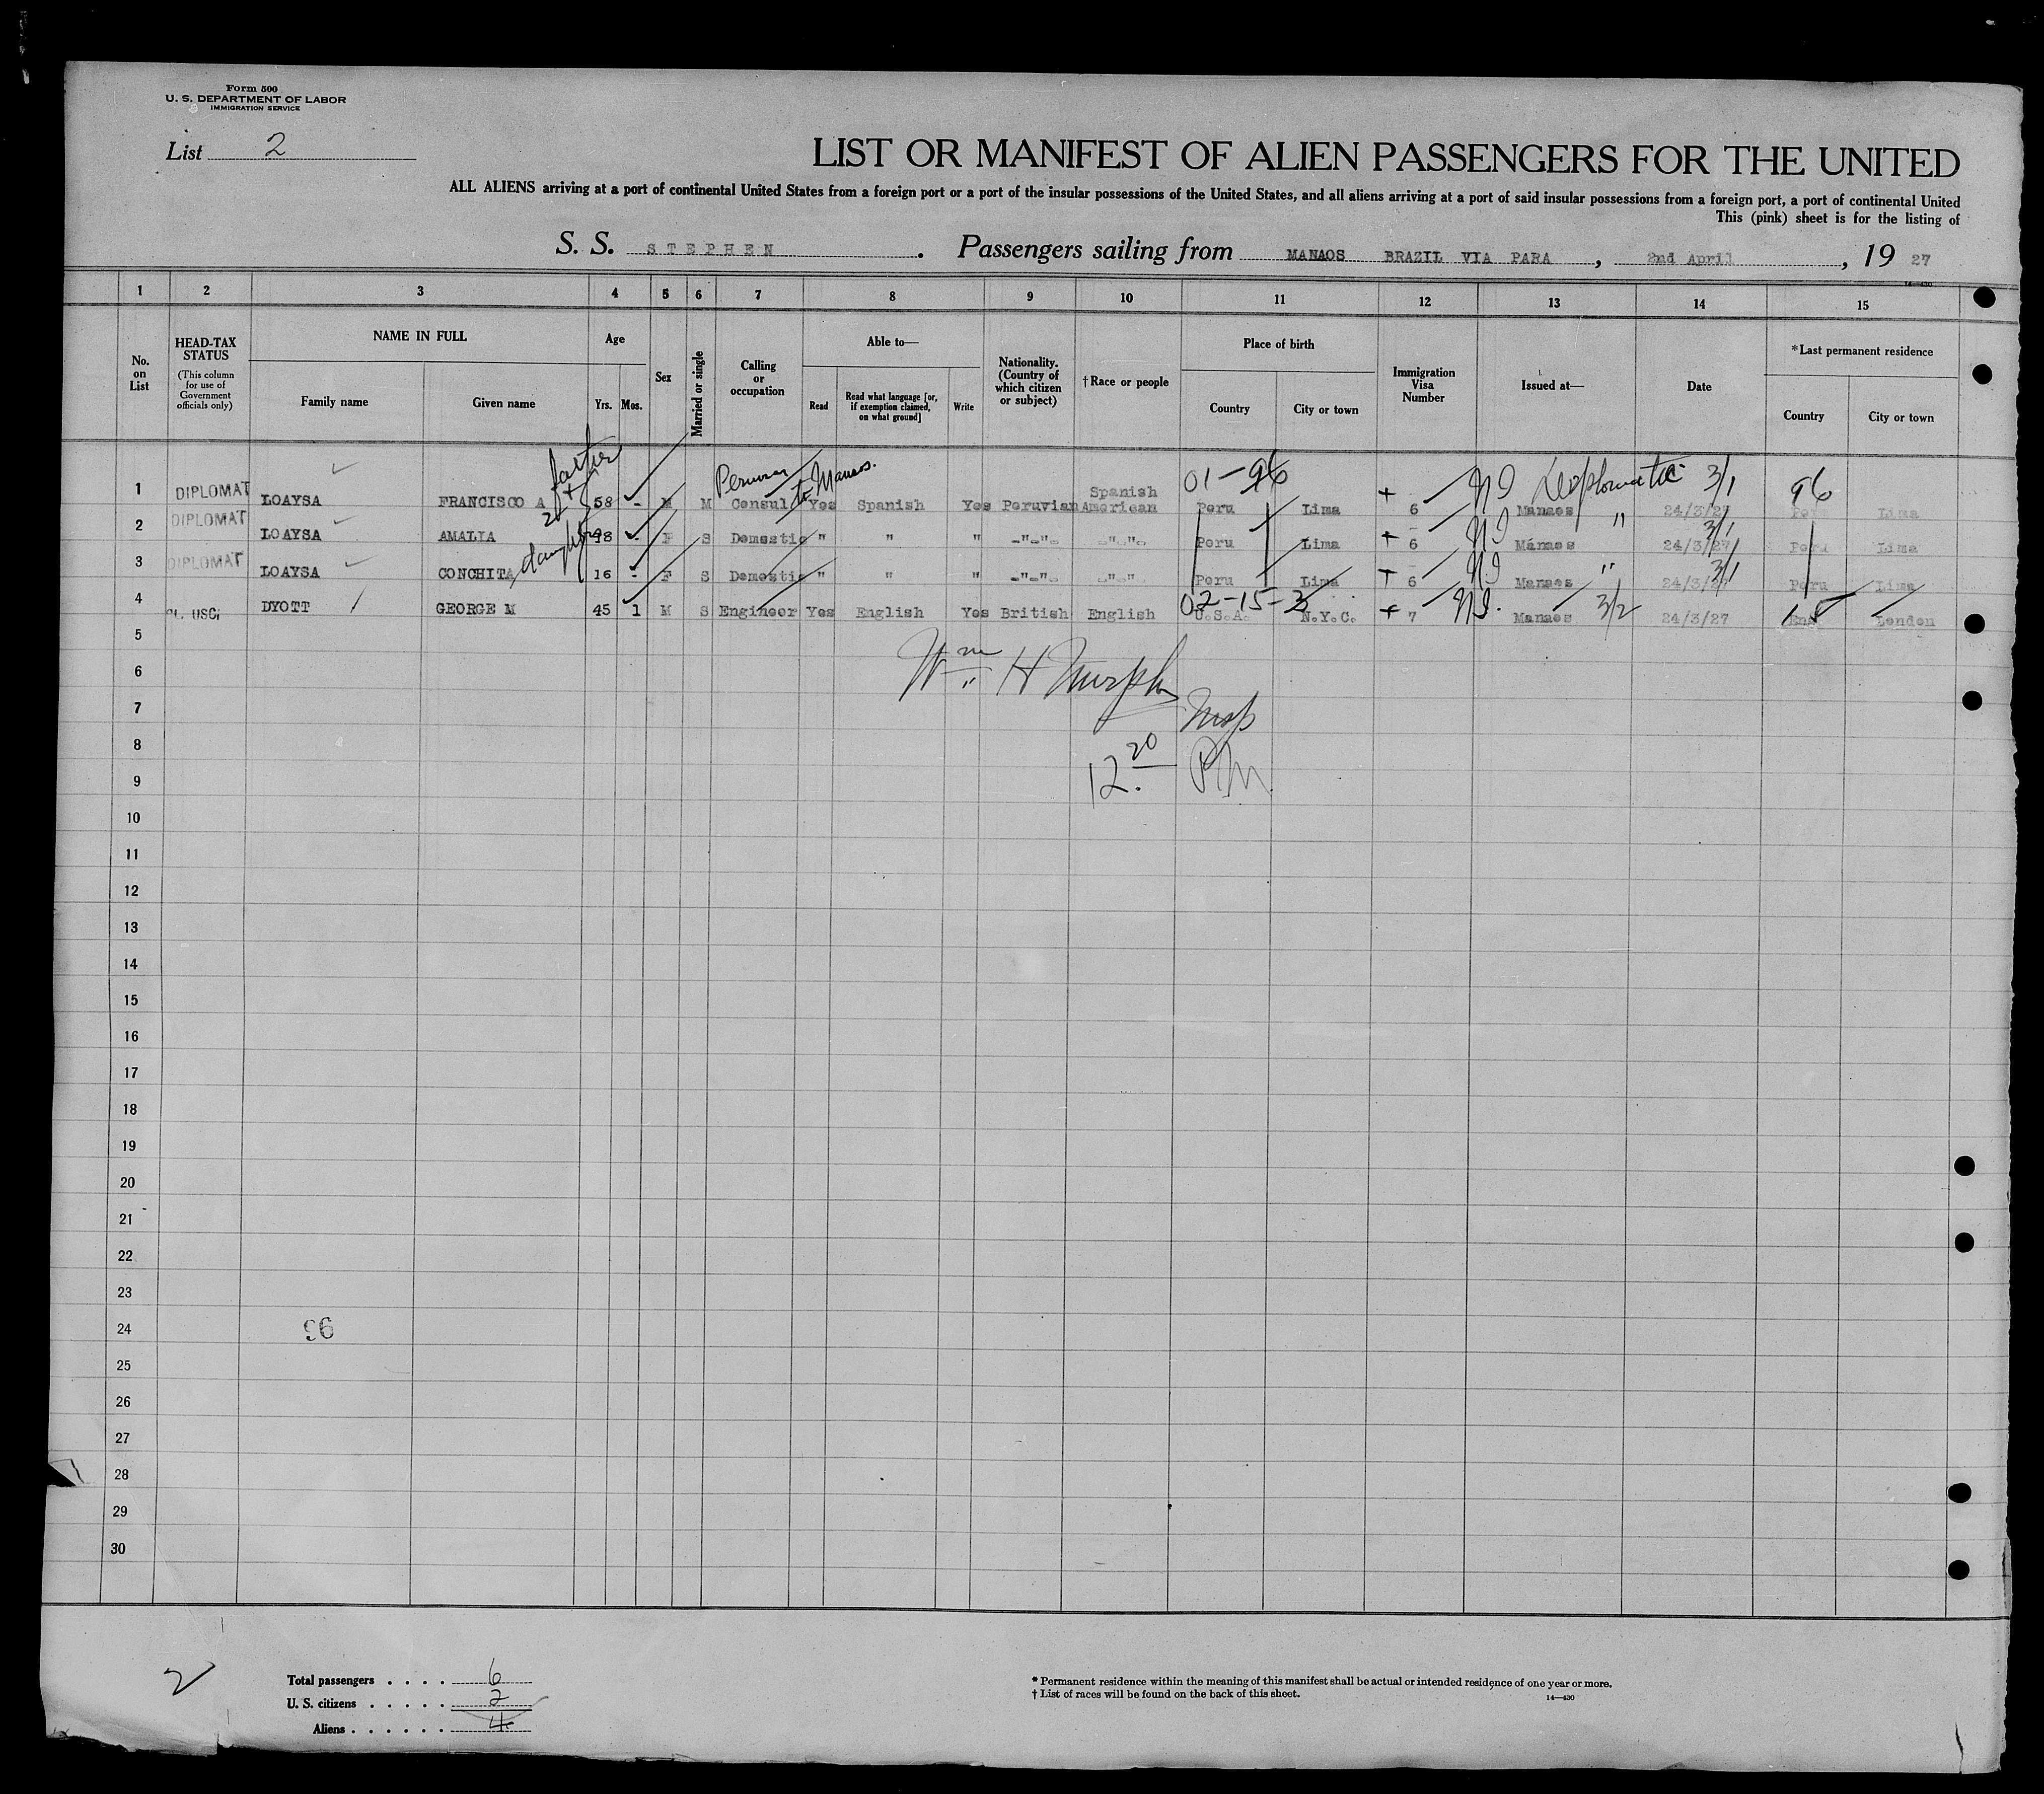 Form 500
U. S. DEPARTMENT OF LABOR
IMMIGRATION SERVICE
List 2
LIST OR MANIFEST OF ALIEN PASSENGERS FOR THE UNITED
ALL ALIENS arriving at a port of continental United States from a foreign port or a port of the insular possessions of the United States, and all aliens arriving at a port of said insular possessions from a foreign port, a port of continental United
This (pink) sheet is for the listing of
S. S. STEPHEN . Passengers sailing from MANAOS BRAZIL VIA PARA , 2nd April , 19 27
14—430
1 2 3 4 5 6 7 8 9 10 11 12 13 14 15
No. on List
HEAD-TAX STATUS (This column for use of Government officials only)
NAME IN FULL
Family name
Given name
Age
Yrs. Mos.
Sex
Married or single
Calling or occupation
Able to—
Read
Read what language [or, if exemption claimed, on what ground]
Write
Nationality. (Country of which citizen or subject)
†Race or people
Place of birth
Country
City or town
Immigration Visa Number
Issued at—
Date
*Last permanent residence
Country
City or town
father + 2 daughters
Peruvian to Manaos.
01-96
1 DIPLOMAT LOAYSA FRANCISCO A 58 - M M Consul Yes Spanish Yes Peruvian Spanish American Peru Lima + 6 NI Diplomatic 3/1 Manaos 24/3/27 96 Peru Lima
2 DIPLOMAT LOAYSA AMALIA 18 - F S Domestic " " " -"-"- -"-"- Peru Lima + 6 NI " 3/1 Manaos 24/3/27 Peru Lima
3 DIPLOMAT LOAYSA CONCHITA 16 - F S Domestic " " " -"-"- -"-"- Peru Lima + 6 NI " 3/1 Manaos 24/3/27 Peru Lima
02-15-3
4 DYOTT GEORGE M 45 1 M S Engineer Yes English Yes British English U.S.A. N.Y.C. + 7 NI. Manaos 3/2 24/3/27 15 Eng London
5
6
Wm H Murphy
7
Insp
8
12.20 PM
9
10
11
12
13
14
15
16
17
18
19
20
21
22
23
24
96
25
26
27
28
29
30
2
Total passengers . . . . 6
U. S. citizens . . . . . 2
Aliens . . . . . . 4
* Permanent residence within the meaning of this manifest shall be actual or intended residence of one year or more.
† List of races will be found on the back of this sheet.
14—430